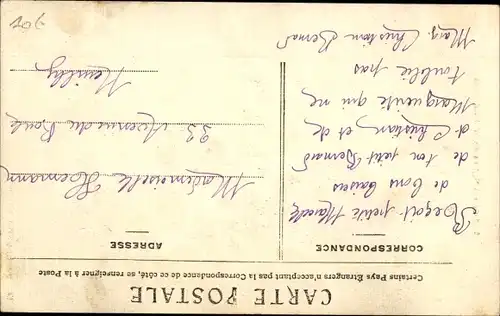 CARTE POSTALE
Certains Pays Etrangers n'acceptant pas la Correspondance de ce côté, se renseigner à la Poste
CORRESPONDANCE
Reçoit petite Marcelle
de bons baisers
de ton petit Bernard
et Christian et de
Marguerite qui ne
t'oublie pas
Marg. Christian Bernard
ADRESSE
Mademoiselle
33 Avenue du Roule
Neuilly